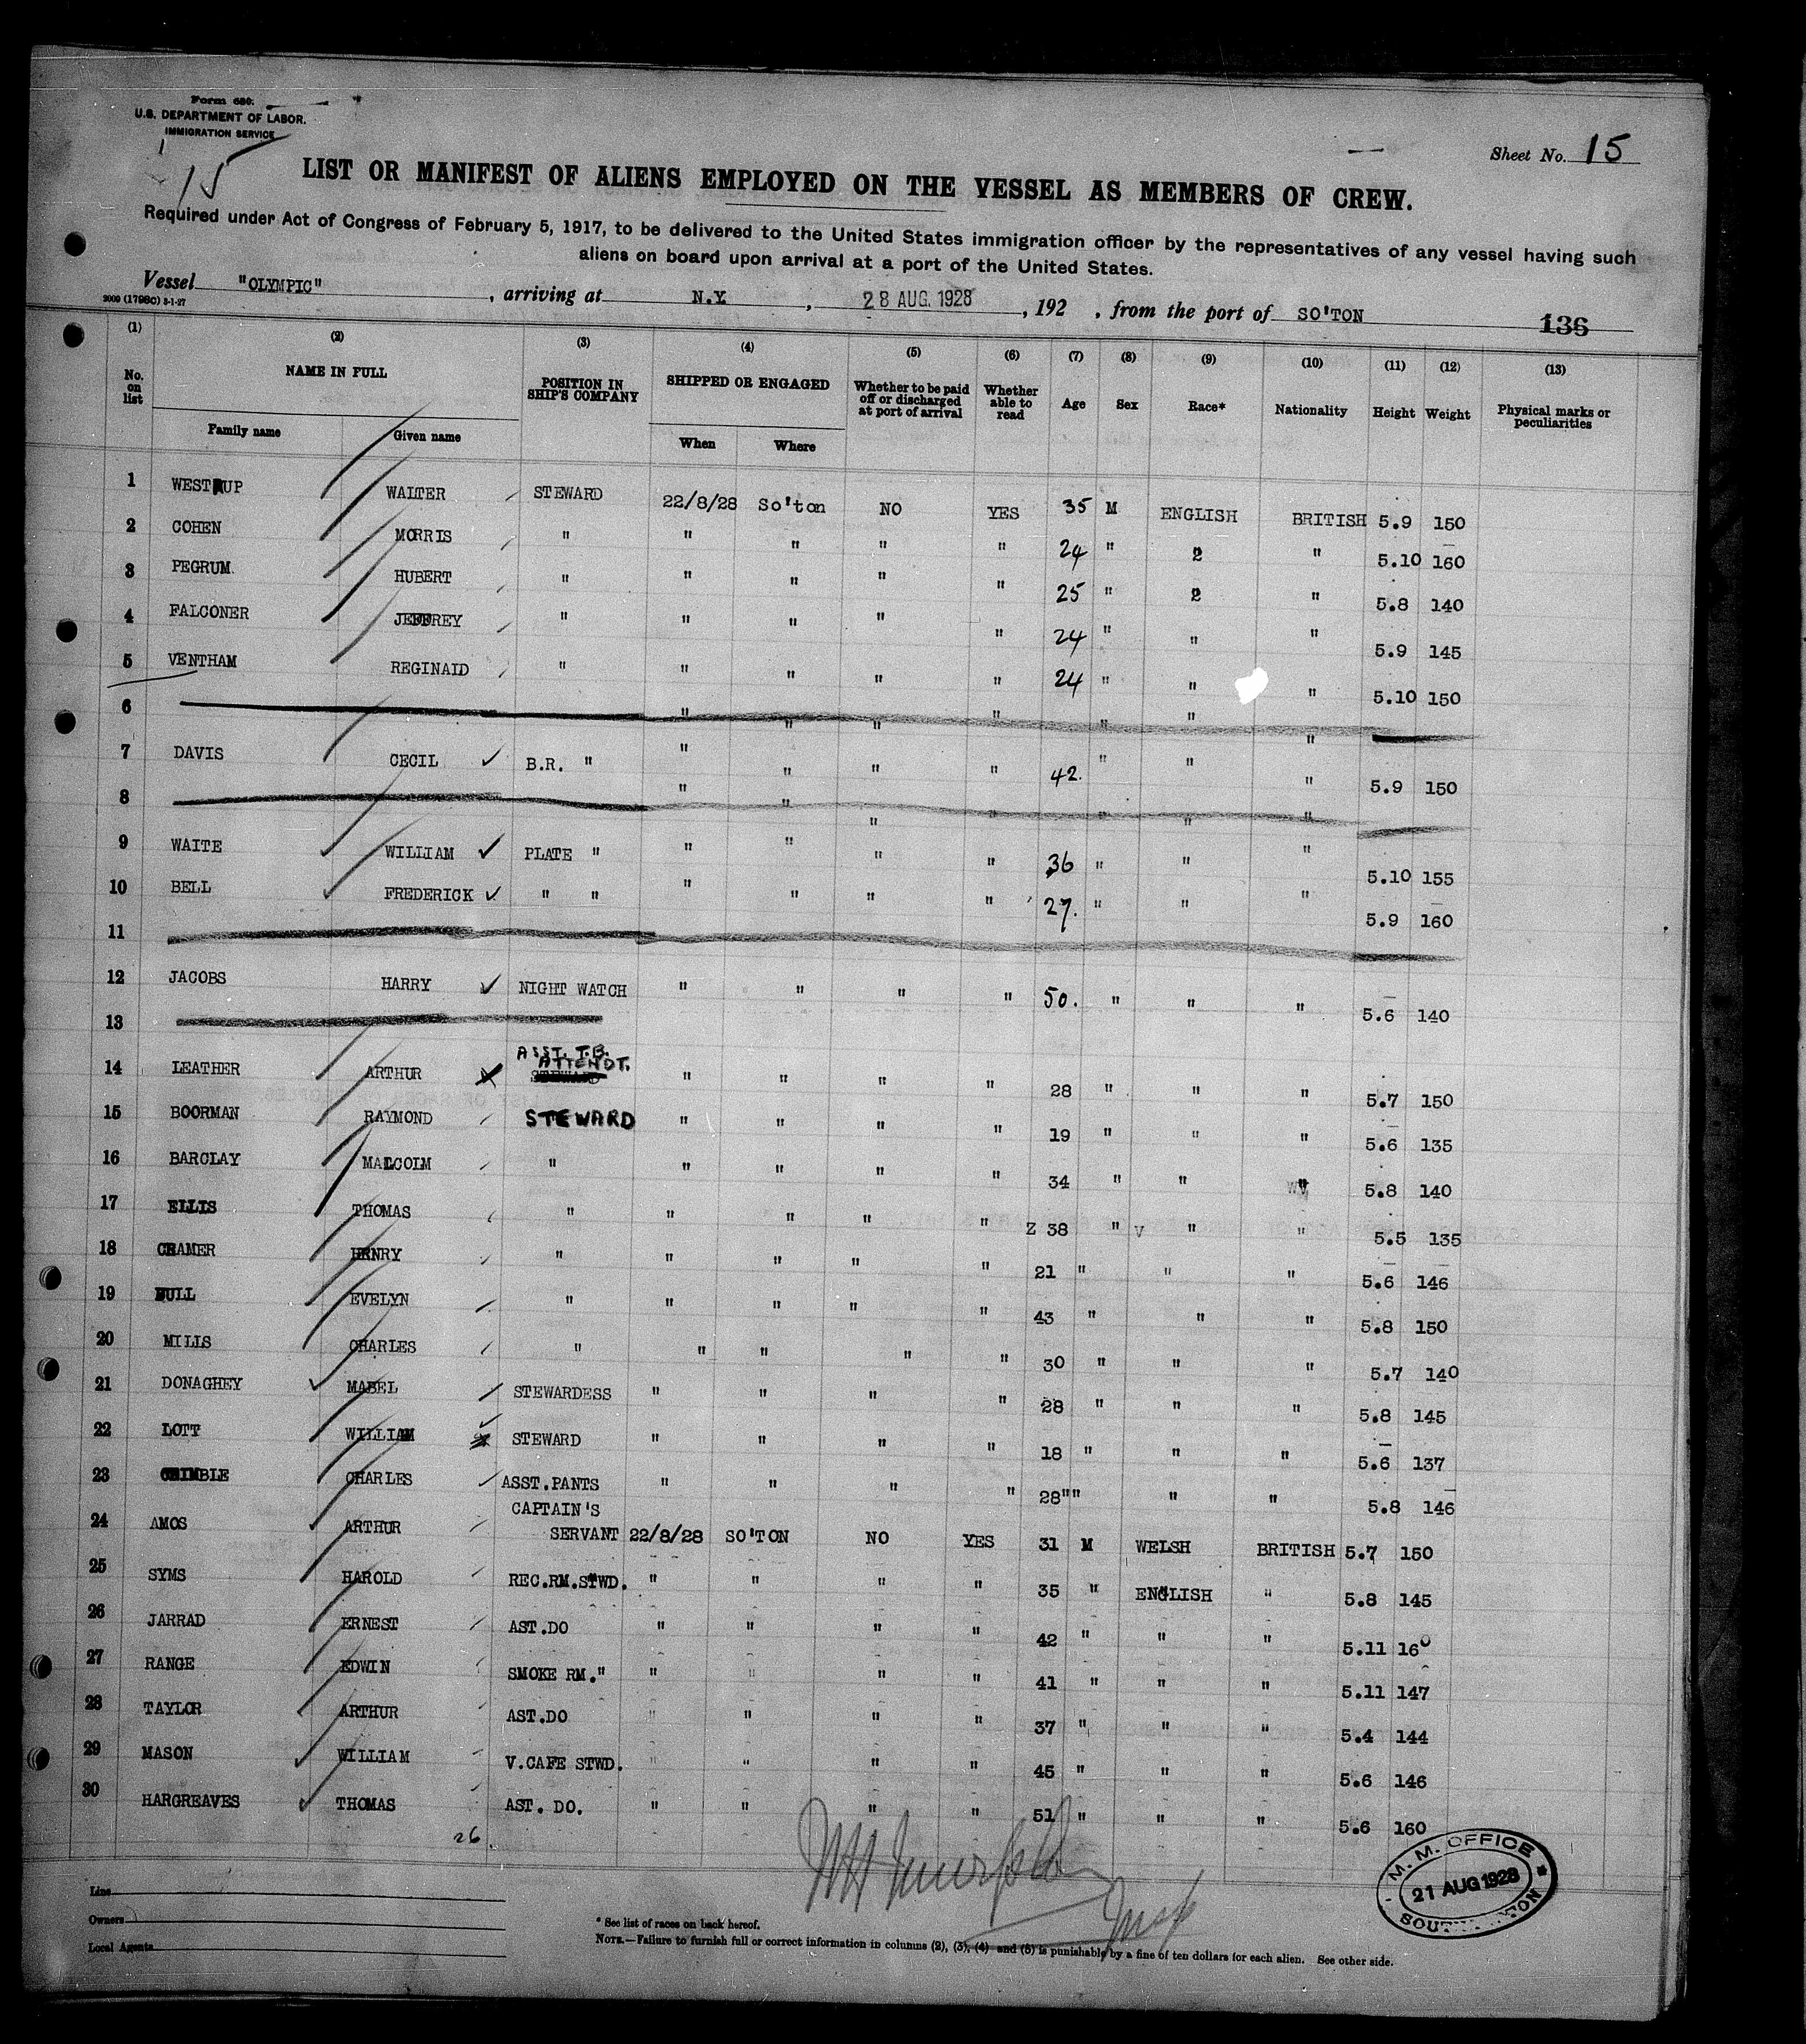 Form 680.
U.S. DEPARTMENT OF LABOR.
IMMIGRATION SERVICE
15
Sheet No. 15
LIST OR MANIFEST OF ALIENS EMPLOYED ON THE VESSEL AS MEMBERS OF CREW.
Required under Act of Congress of February 5, 1917, to be delivered to the United States immigration officer by the representatives of any vessel having such
aliens on board upon arrival at a port of the United States.
Vessel "OLYMPIC", arriving at N.Y., 28 AUG. 1928, 192 , from the port of SO'TON
2009 (1798C) 3-1-27
136
(1) (2) (3) (4) (5) (6) (7) (8) (9) (10) (11) (12) (13)
No. on list NAME IN FULL POSITION IN SHIP'S COMPANY SHIPPED OR ENGAGED Whether to be paid off or discharged at port of arrival Whether able to read Age Sex Race* Nationality Height Weight Physical marks or peculiarities
Family name Given name When Where
1 WESTRUP WALTER STEWARD 22/8/28 So'ton NO YES 35 M ENGLISH BRITISH 5.9 150
2 COHEN MORRIS " " " " " 24 " 2 " 5.10 160
3 PEGRUM. HUBERT " " " " " 25 " 2 " 5.8 140
4 FALCONER JEFFREY " " " " " 24 " " " 5.9 145
5 VENTHAM REGINALD " " " " " 24 " " " 5.10 150
6 " " " " " " "
7 DAVIS CECIL B.R. " " " " " 42. " " " 5.9 150
8 " " " " " " "
9 WAITE WILLIAM PLATE " " " " " 36 " " " 5.10 155
10 BELL FREDERICK " " " " " " 27. " " " 5.9 160
11
12 JACOBS HARRY NIGHT WATCH " " " " 50. " " " 5.6 140
13
14 LEATHER ARTHUR ASST. T.B. ATTENDT. STEWARD " " " " 28 " " " 5.7 150
15 BOORMAN RAYMOND STEWARD " " " " 19 " " " 5.6 135
16 BARCLAY MALCOLM " " " " " 34 " " " 5.8 140
17 ELLIS THOMAS " " " " " Z 38 " V " " 5.5 135
18 CRAMER HENRY " " " " " 21 " " " 5.6 146
19 EVELYN " " " " " 43 " " " 5.8 150
20 MILLS CHARLES " " " " " 30 " " " 5.7 140
21 DONAGHEY MABEL STEWARDESS " " " " 28 " " " 5.8 145
22 LOTT WILLIAM STEWARD " " " " 18 " " " 5.6 137
23 CHARLES ASST.PANTS " " " " 28 "" " " 5.8 146
24 AMOS ARTHUR CAPTAIN'S SERVANT 22/8/28 SO'TON NO YES 31 M WELSH BRITISH 5.7 150
25 SYMS HAROLD REC.RM.STWD. " " " " 35 " ENGLISH " 5.8 145
26 JARRAD ERNEST AST.DO " " " " 42 " " " 5.11 160
27 RANGE EDWIN SMOKE RM." " " " " 41 " " " 5.11 147
28 TAYLOR ARTHUR AST.DO " " " " 37 " " " 5.4 144
29 MASON WILLIAM V.CAFE STWD. " " " " 45 " " " 5.6 146
30 HARGREAVES THOMAS AST. DO. " " " " 51 " " " 5.6 160
26
M. M. OFFICE
21 AUG 1928
Line
Owners
Local Agents
* See list of races on back hereof.
NOTE.—Failure to furnish full or correct information in columns (2), (3), (4) and (5) is punishable by a fine of ten dollars for each alien. See other side.